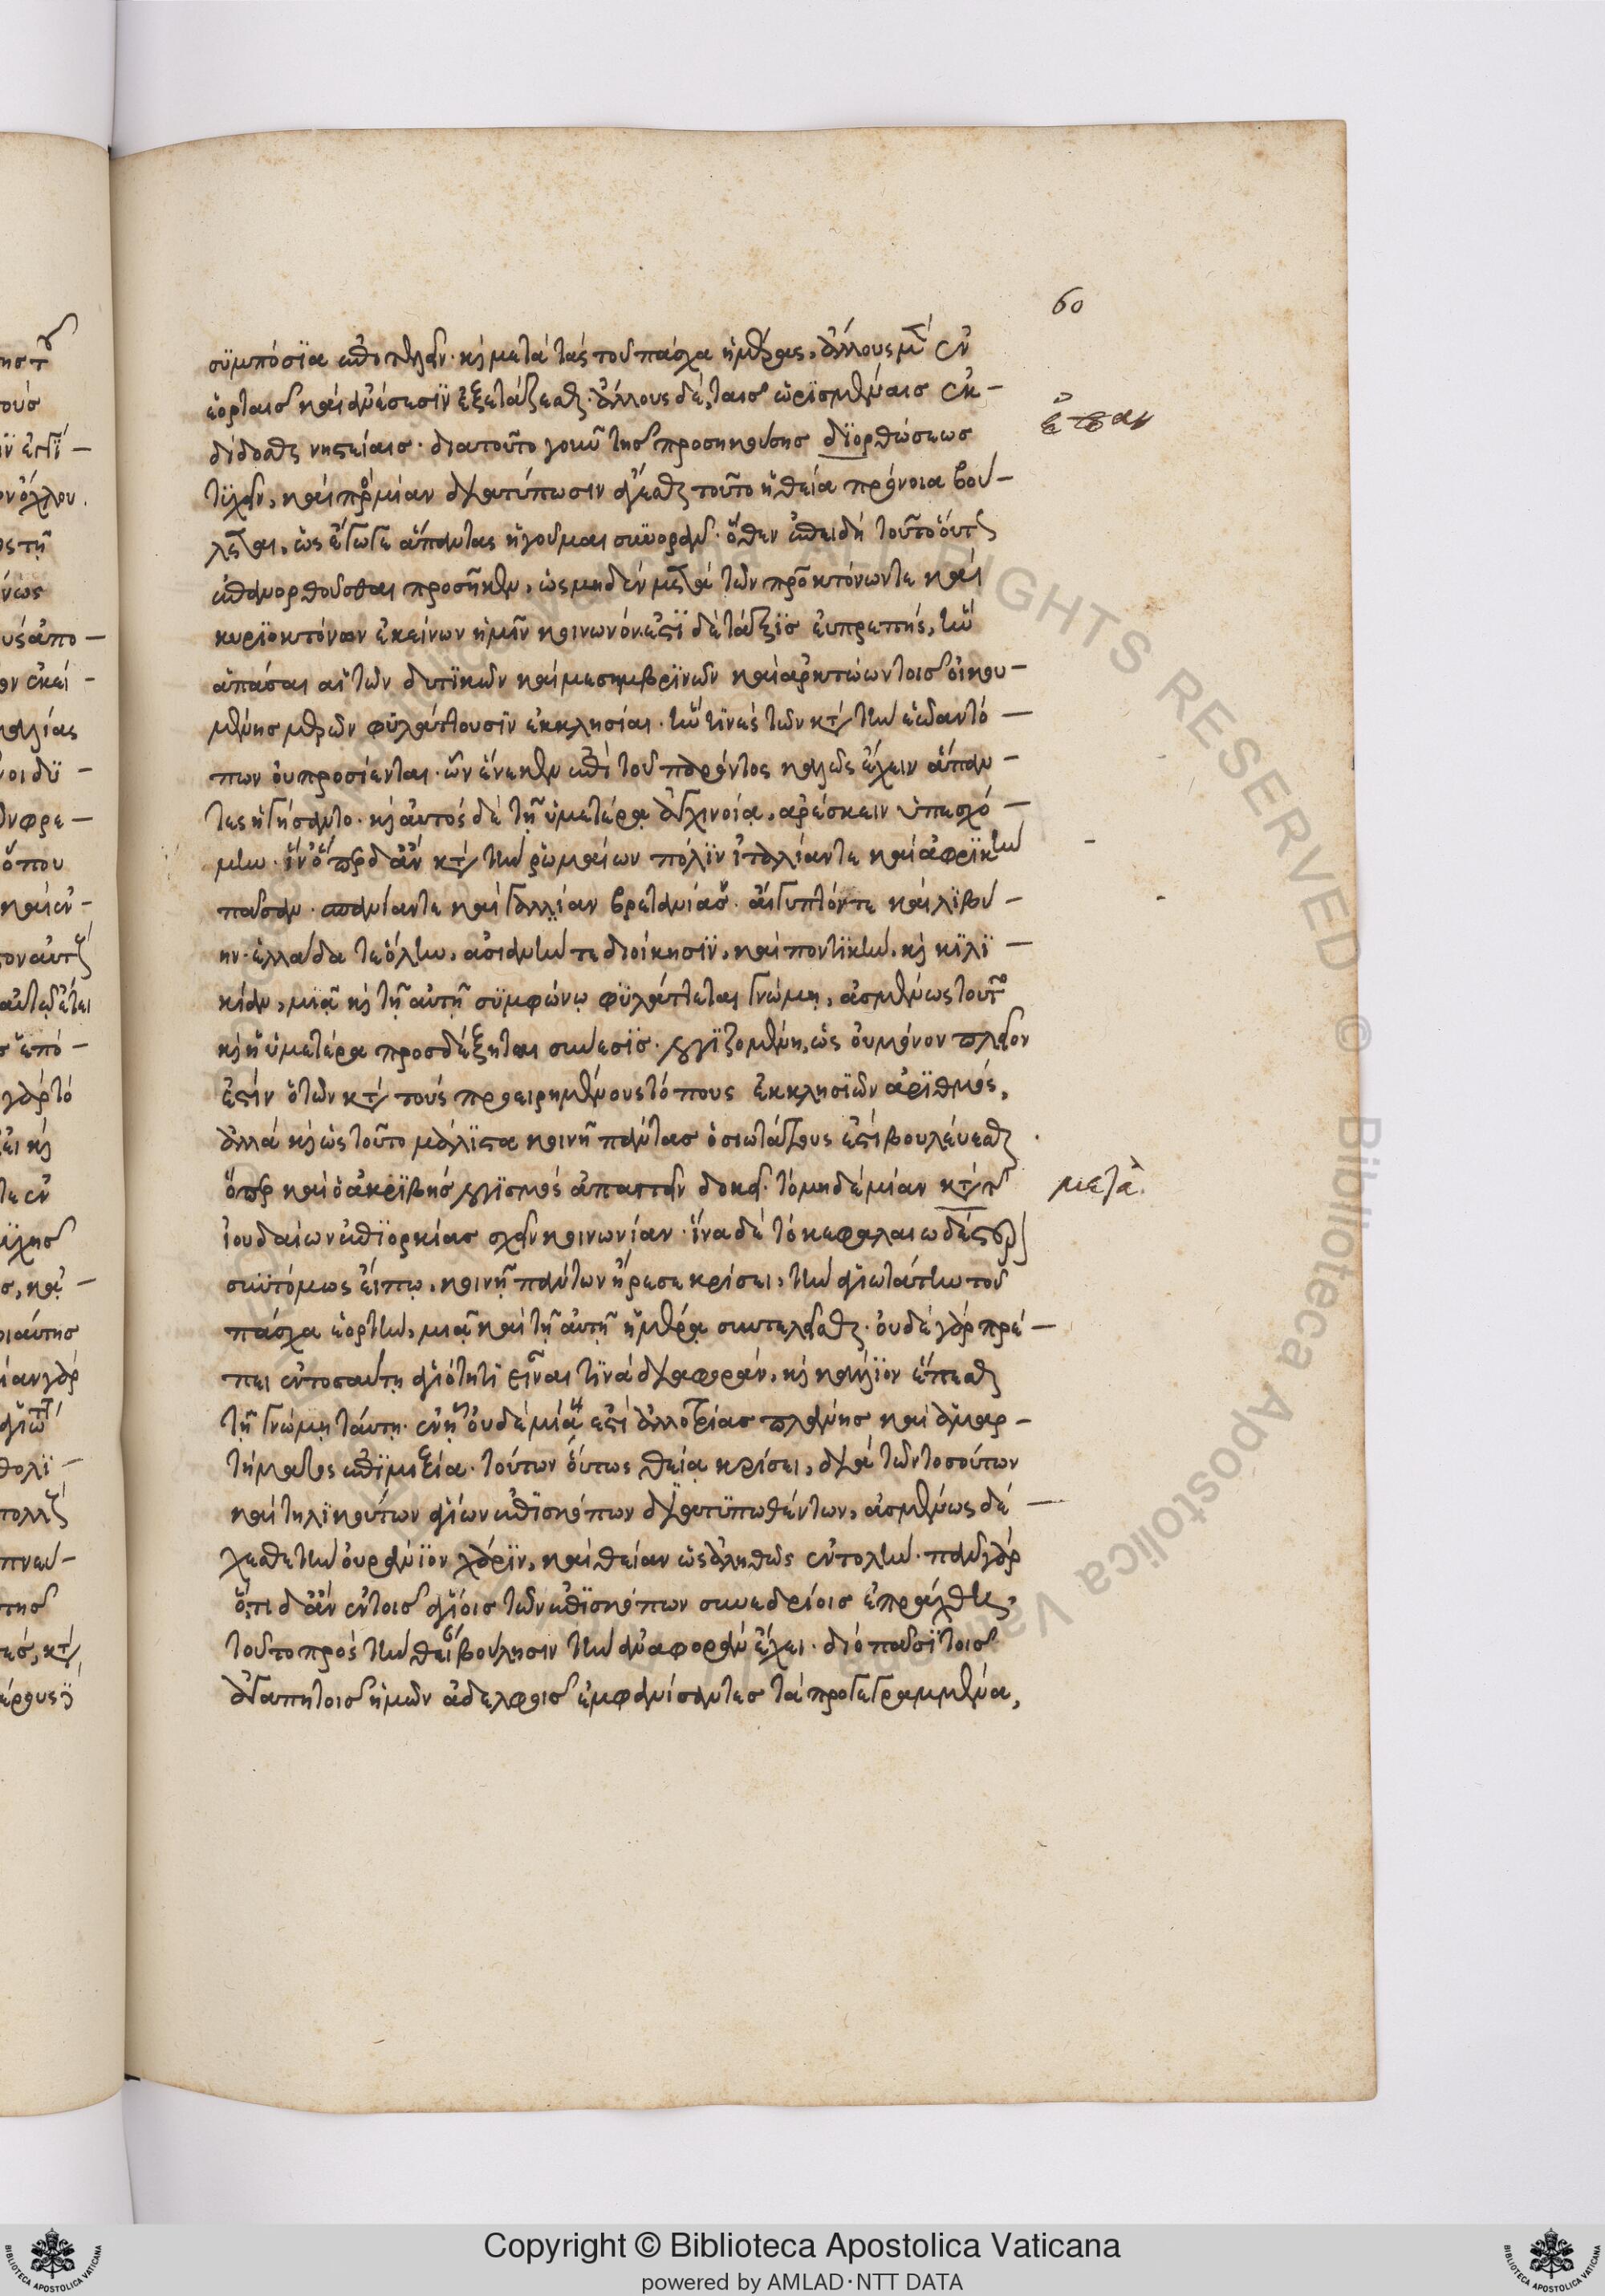 60
συμπόσια ἐπιτελεῖν· καὶ μετὰ τὰς τοῦ πάσχα ἡμέρας, ἄλλους μὲν ἐν
ἑορταῖς καὶ ἀνέσεσιν ἐξετάζεσθαι· ἄλλους δὲ, ταῖς ὡρισμέναις ἐκ–
δίδοσθαι νηστείαις· διατοῦτο γοῦν τῆς προσηκούσης διορθώσεως
τυχεῖν, καὶ πρὸς μίαν διατύπωσιν ἄγεσθαι τοῦτο ἡ θεία πρόνοια βού–
λεται, ὡς ἔγωγε ἅπαντας ἡγοῦμαι συνορᾶν· ὅθεν ἐπειδὴ τοῦτο οὕτως
ἐπανορθοῦσθαι προσῆκεν, ὡς μηδὲν μετὰ τῶν πατροκτόνων τε καὶ
κυριοκτόνων ἐκείνων ἡμῖν κοινωνόν. ἐστὶ δὲ τάξις εὐπρεπής, ἣν
ἁπάσαι αἱ τῶν δυτικῶν καὶ μεσημβρινῶν καὶ ἀρκτώων τοῖς οἰκου–
μένης μερῶν φυλάττουσιν ἐκκλησίαι· ἣν τινὲς τῶν κατὰ τὴν ἑῴαν τό–
πων οὐ προσίενται· ὧν ἕνεκεν ἐπὶ τοῦ παρόντος καλῶς ἔχειν ἅπαν–
τες ἡγήσαντο· καὶ αὐτὸς δὲ τῇ ὑμετέρᾳ ἀγχινοίᾳ, ἀρέσκειν ὑπεσχό–
μην· ἵν' ὅπερ δ' ἂν κατὰ τὴν ῥωμαίων πόλιν ἰταλίαν τε καὶ ἀφρικὴν
πᾶσαν· σπανίαν τε καὶ γαλλίαν βρετανίας· αἴγυπτόν τε καὶ λιβύ–
ην· ἑλλάδα τε ὅλην, ἀσιανήν τε διοίκησιν, καὶ ποντικὴν, καὶ κιλι–
κίαν, μιᾷ καὶ τῇ αὐτῇ συμφώνῳ φυλάττεται γνώμῃ, ἀσμένως τοῦτο
καὶ ἡ ὑμετέρα προσδέξηται σύνεσις· λογιζομένη, ὡς οὐ μόνον πλείων
ἐστὶν ὁ τῶν κατὰ τοὺς προειρημένους τόπους ἐκκλησιῶν ἀριθμός,
ἀλλὰ καὶ ὡς τοῦτο μάλιστα κοινῇ πάντας ὁσιωτάτους ἐστὶ βουλεύεσθαι
ὅπερ καὶ ὁ ἀκριβὴς λογισμὸς ἀπαιτεῖν δοκεῖ· τὸ μηδεμίαν κατὰ τῆς
ἰουδαίων ἐπιορκίας σχεῖν κοινωνίαν· ἵνα δὲ τὸ κεφαλαιωδέστερον
συντόμως εἴπω, κοινῇ πάντων ἤρεσε κρίσει, τὴν ἁγιωτάτην τοῦ
πάσχα ἑορτὴν, μιᾷ καὶ τῇ αὐτῇ ἡμέρᾳ συντελεῖσθαι· οὐδὲ γὰρ πρέ–
πει ἐν τοσαύτῃ ἁγιότητι εἶναι τινὰ διαφορὰν, καὶ κάλλιον ἕπεσθαι
τῇ γνώμῃ ταύτῃ· ἐν ᾗ οὐδεμία ἐστὶ ἀλλοτρίας πλάνης καὶ ἁμαρ–
τήματος ἐπιμιξία· τούτων οὕτως θείᾳ κρίσει, διὰ τῶν τοσούτων
καὶ τηλικούτων ἁγίων ἐπισκόπων διατυπωθέντων, ἀσμένως δέ–
χεσθε τὴν οὐράνιον χάριν, καὶ θείαν ὡς ἀληθῶς ἐντολήν· πᾶν γὰρ
ὅ,τι δ' ἂν ἐν τοῖς ἁγίοις τῶν ἐπισκόπων συνεδρίοις ἐπράχθη,
τοῦτο πρὸς τὴν θείαν βούλησιν τὴν ἀναφορὰν ἔχει· διὸ πᾶσι τοῖς
ἀγαπητοῖς ἡμῶν ἀδελφοῖς ἐμφανίσαντες τὰ προγεγραμμένα,
μετὰ
Copyright © Biblioteca Apostolica Vaticana
powered by AMLAD·NTT DATA